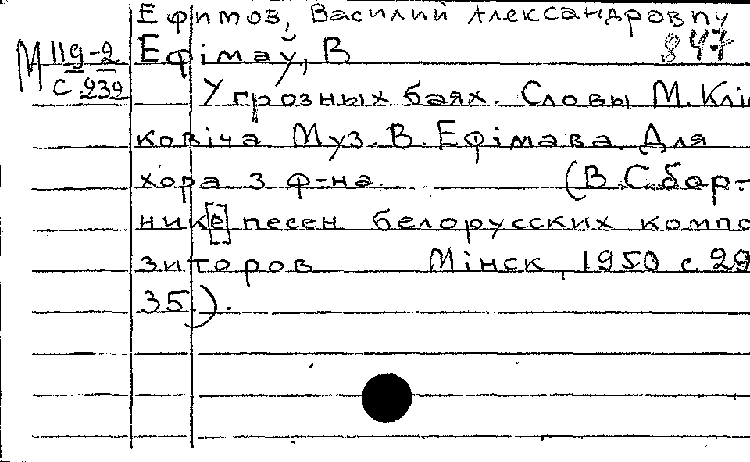 Ефимов, Василий Александрович
М 119-2 Ефімаў, В 847
С 239 У грозных баях. Словы М. Клі-
ковіча Муз. В. Ефімава. Для
хора з ф-на. (В Сбор-
ник[е] песен белорусских компо
зиторов Мінск, 1950 с. 29
35).